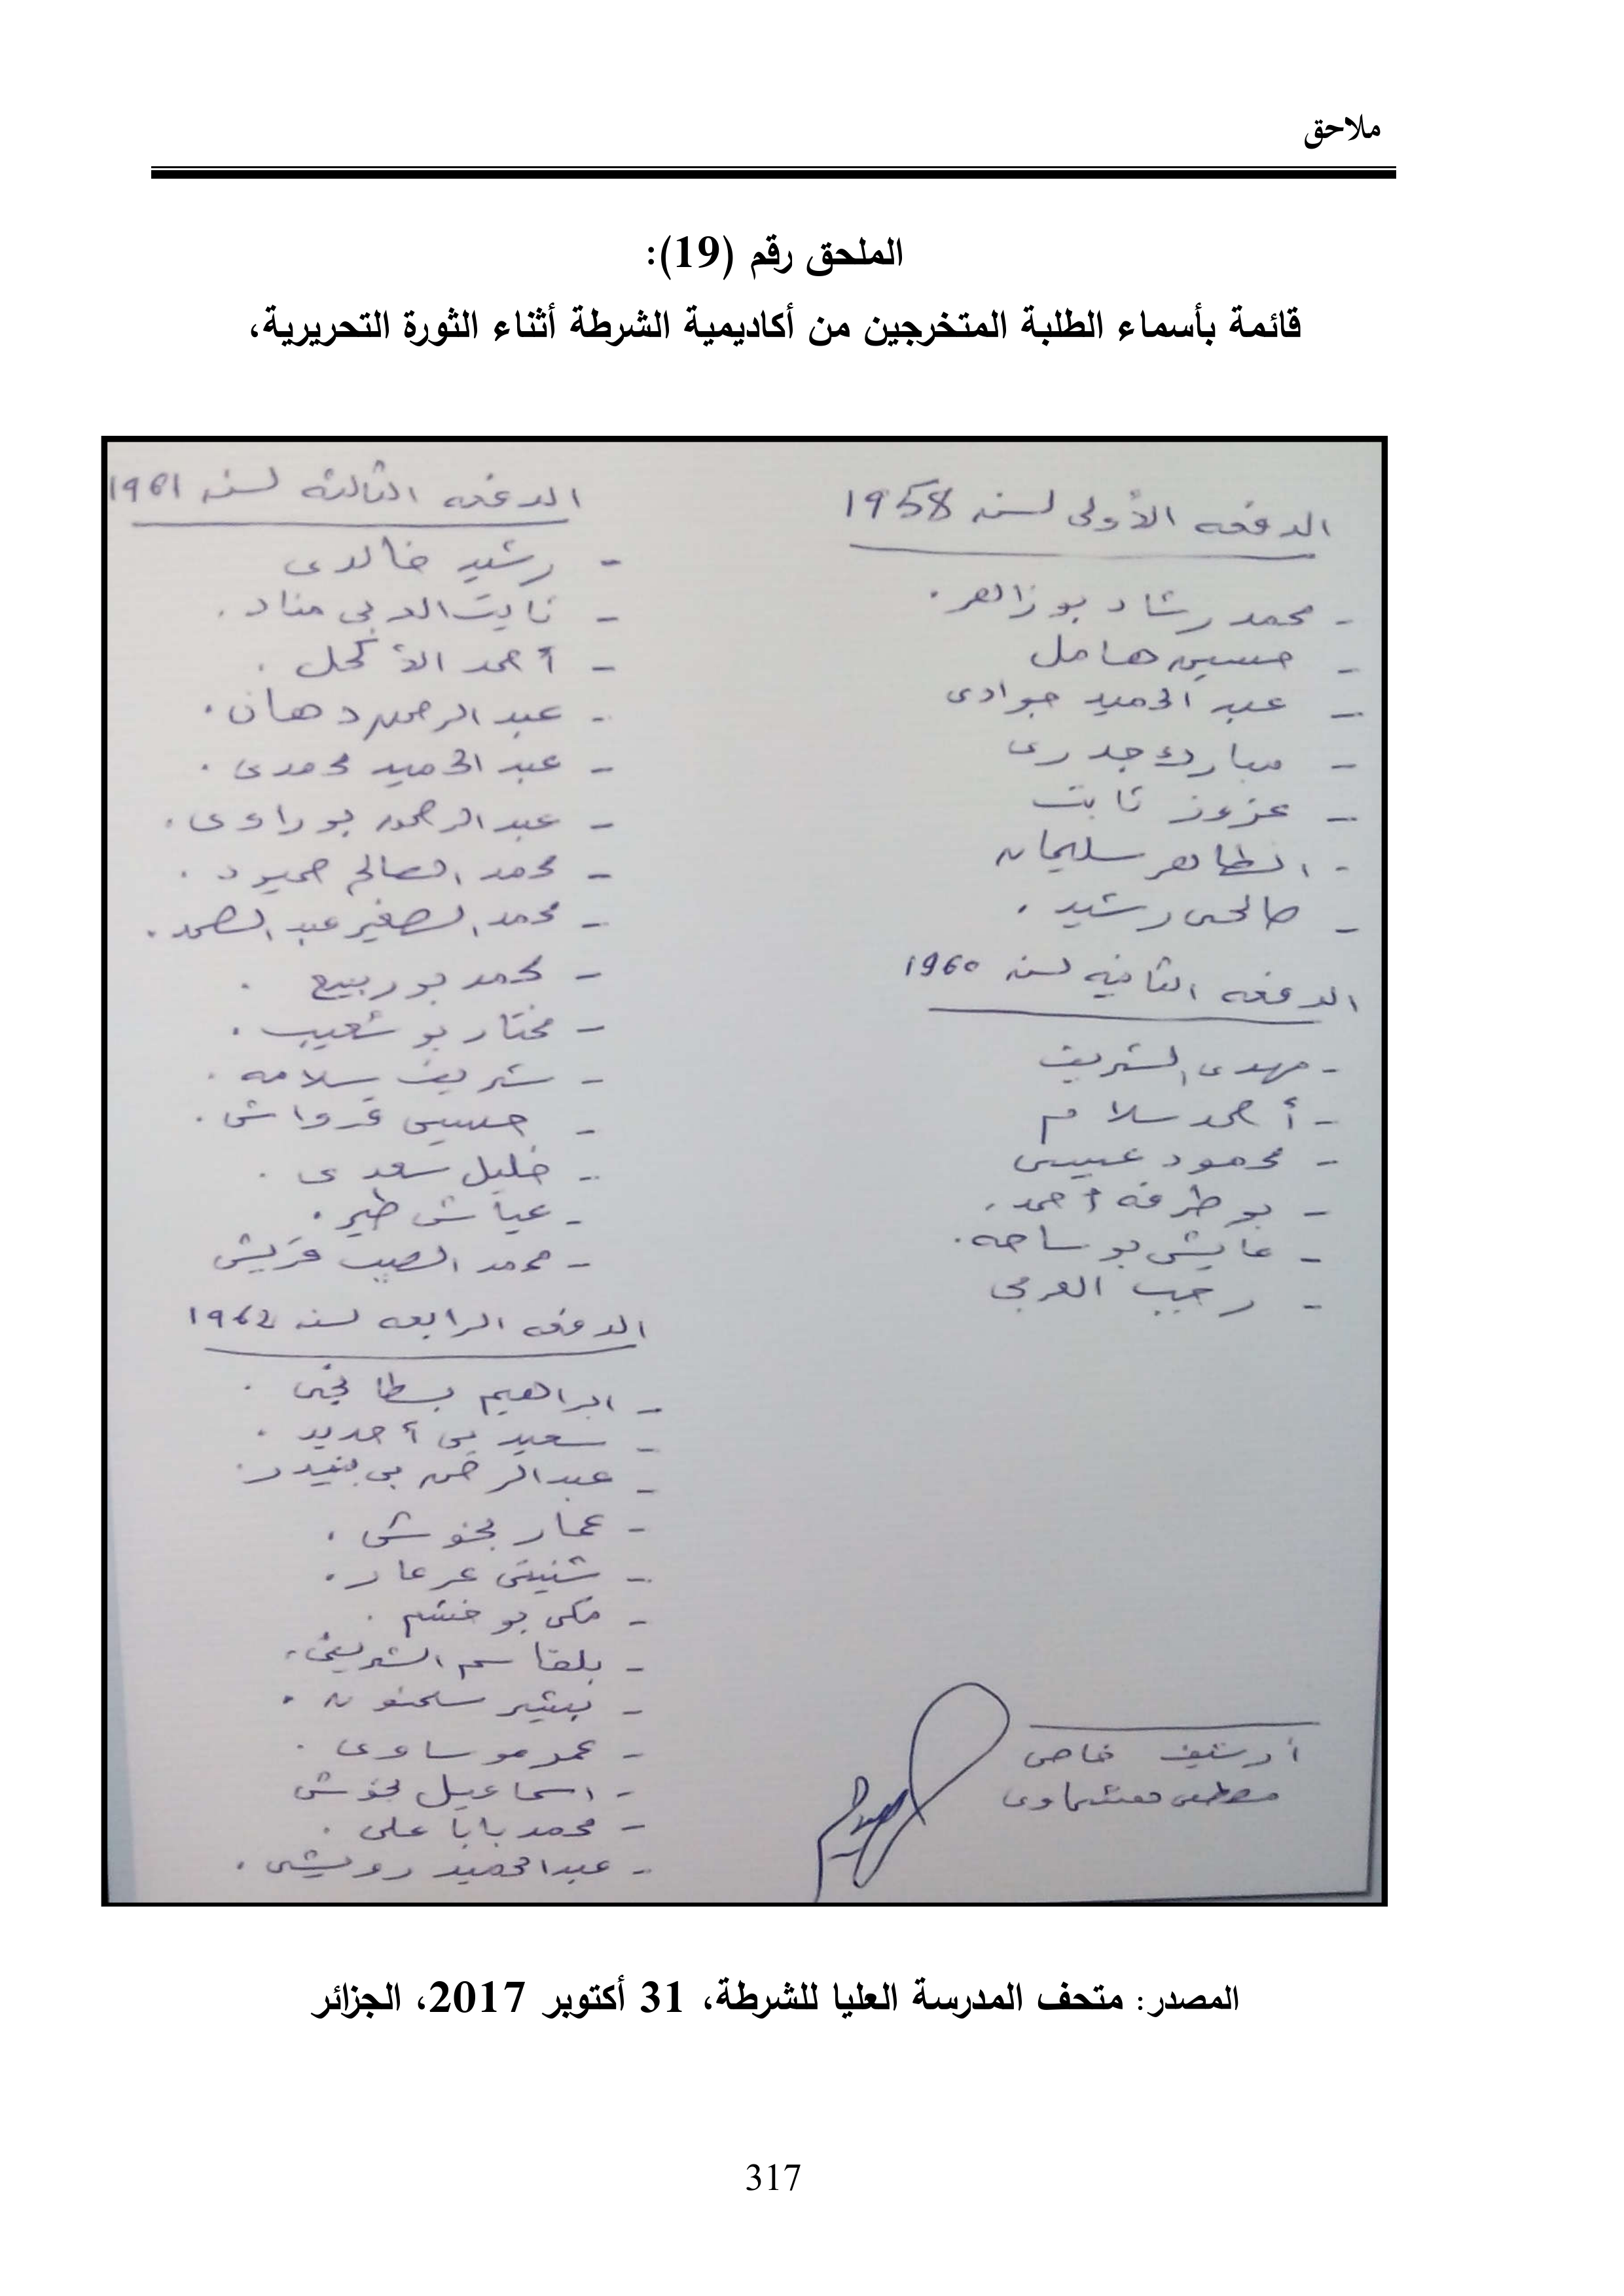 ملاحق
الملحق رقم (19):
قائمة بأسماء الطلبة المتخرجين من أكاديمية الشرطة أثناء الثورة التحريرية،
الدفعه الأولى لسنه 1958
- محمد رشاد بوزاهر.
- حسين هامل
- عبد الحميد جوادى
- مبارك جدرى
- عزوز ثابت
- الطاهر سليمان
- صالحى رشيد.
الدفعه الثانيه لسنه 1960
- مهدى الشريف
- أحمد سلام
- محمود عيسى
- بوطرفه أحمد.
- عايش بوساحه.
- رجب العربى
أرشيف خاص
الدفعه الثالثه لسنه 1961
- رشيد خالدى
- نايت العربى مناد.
- أحمد الأكحل.
- عبد الرحمن دهان.
- عبد الحميد محمدى.
- عبد الرحمن بوراوى.
- محمد الصالح حميود.
- محمد الصغير عبد الصمد.
- محمد بوربيع.
- مختار بوشعيب.
- شريف سلامه.
- حسين قرواش.
- خليل سعدى.
- عياش طير.
- محمد الطيب قريش
الدفعه الرابعه لسنه 1962
- ابراهيم بسطانجى.
- سعيد بى أحديد.
- عبد الرحمن بى
- عمار بخوش.
- شنيتى عرعار.
- مكى بوخشم.
- بلقاسم الشريف.
- بشير سحنون.
- عمر موساوى.
- اسماعيل بخوش
- محمد بابا على.
- عبد الحميد رويش.
المصدر: متحف المدرسة العليا للشرطة، 31 أكتوبر 2017، الجزائر
317